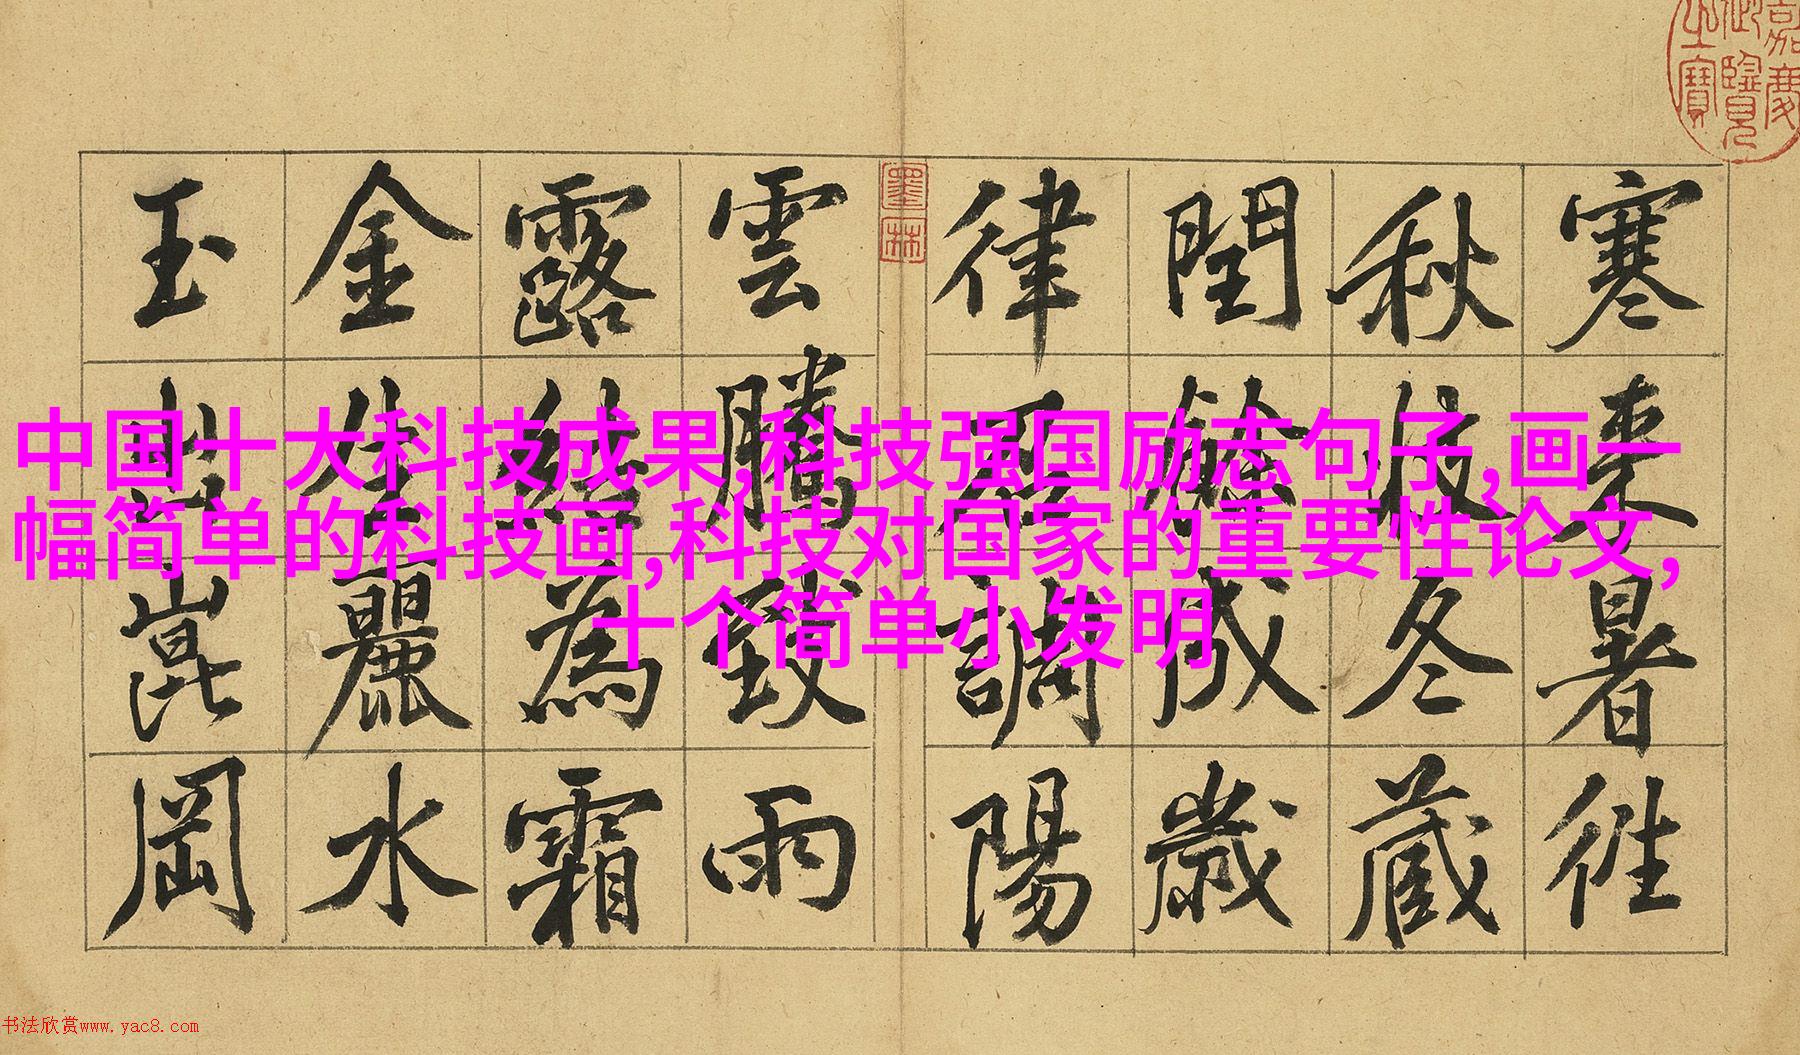 嘉慶
御覽
之寶
寒来暑往
秋收冬蔵
閏餘成歲
律調陽
墨林
雲騰致雨
露結為霜
金生麗水
玉出崑岡
中国十大科技成果,科技强国励志句子,画一
幅简单的科技画,科技对国家的重要性论文,
十个简单小发明
书法欣赏www.yac8.com